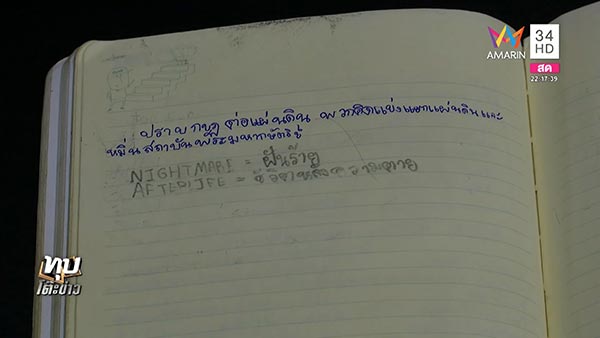 AMARIN
34
HD
สด
22:17:39
ปราบกบฏต่อแผ่นดิน พวกคิดแบ่งแยกแผ่นดินและ
หมิ่นสถาบันพระมหากษัตริย์
NIGHTMARE = ฝันร้าย
AFTERLIFE = ชีวิตหลังความตาย
ทุบ
โต๊ะข่าว